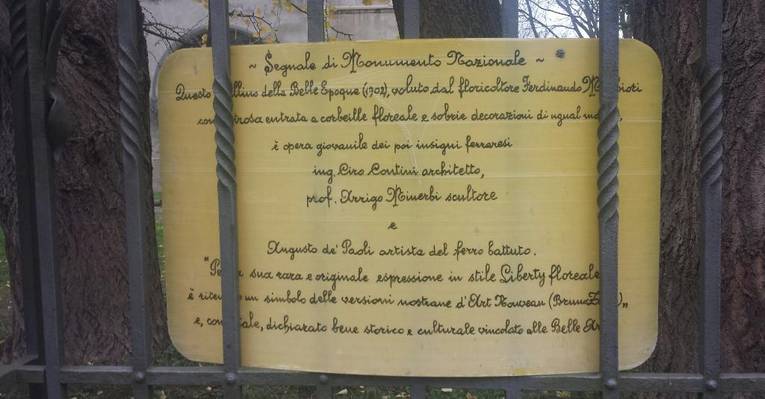 ~ Segnale di Monumento Nazionale ~
Questo della Belle Epoque (1902), voluto dal floricoltore Ferdinando
entrata a corbeille floreale e sobrie decorazioni di ugual
è opera giovanile dei poi insigni ferraresi
ing. Ciro Contini architetto,
prof. Arrigo Minerbi scultore
e
Augusto de' Paoli artista del ferro battuto.
sua rara e originale espressione in stile Liberty floreale
è un simbolo delle versioni nostrane d'Art Nouveau (Bruno
e, dichiarato bene storico e culturale vincolato alle Belle